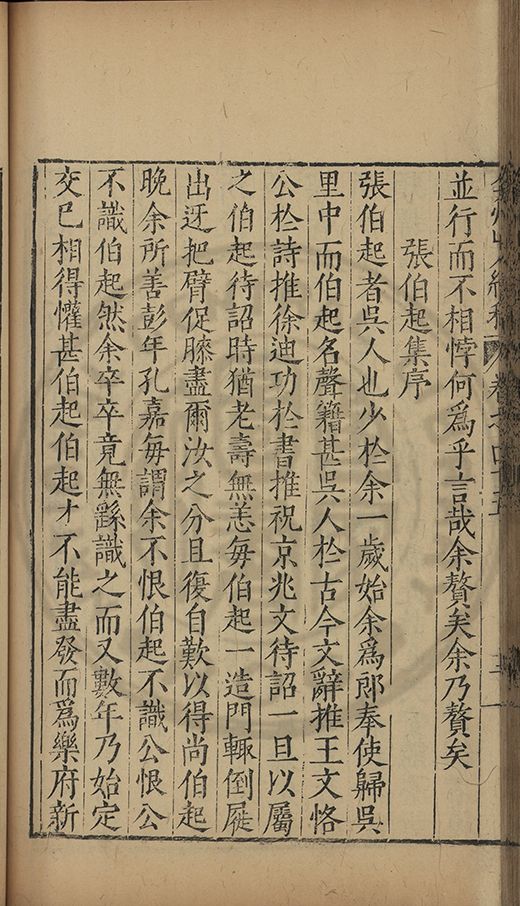 並行而不相悖何爲乎言哉余贅矣余乃贅矣
張伯起集序
張伯起者吳人也少於余一歲始余爲郎奉使歸吳
里中而伯起名聲籍甚吳人於古今文辭推王文恪
公於詩推徐迪功於書推祝京兆文待詔一旦以屬
之伯起待詔時猶老壽無恙每伯起一造門輙倒屣
出迓把臂促膝盡爾汝之分且復自歎以得尚伯起
晚余所善彭年孔嘉每謂余不恨伯起不識公恨公
不識伯起然余卒卒竟無繇識之而又數年乃始定
交已相得懽甚伯起伯起才不能盡發而爲樂府新